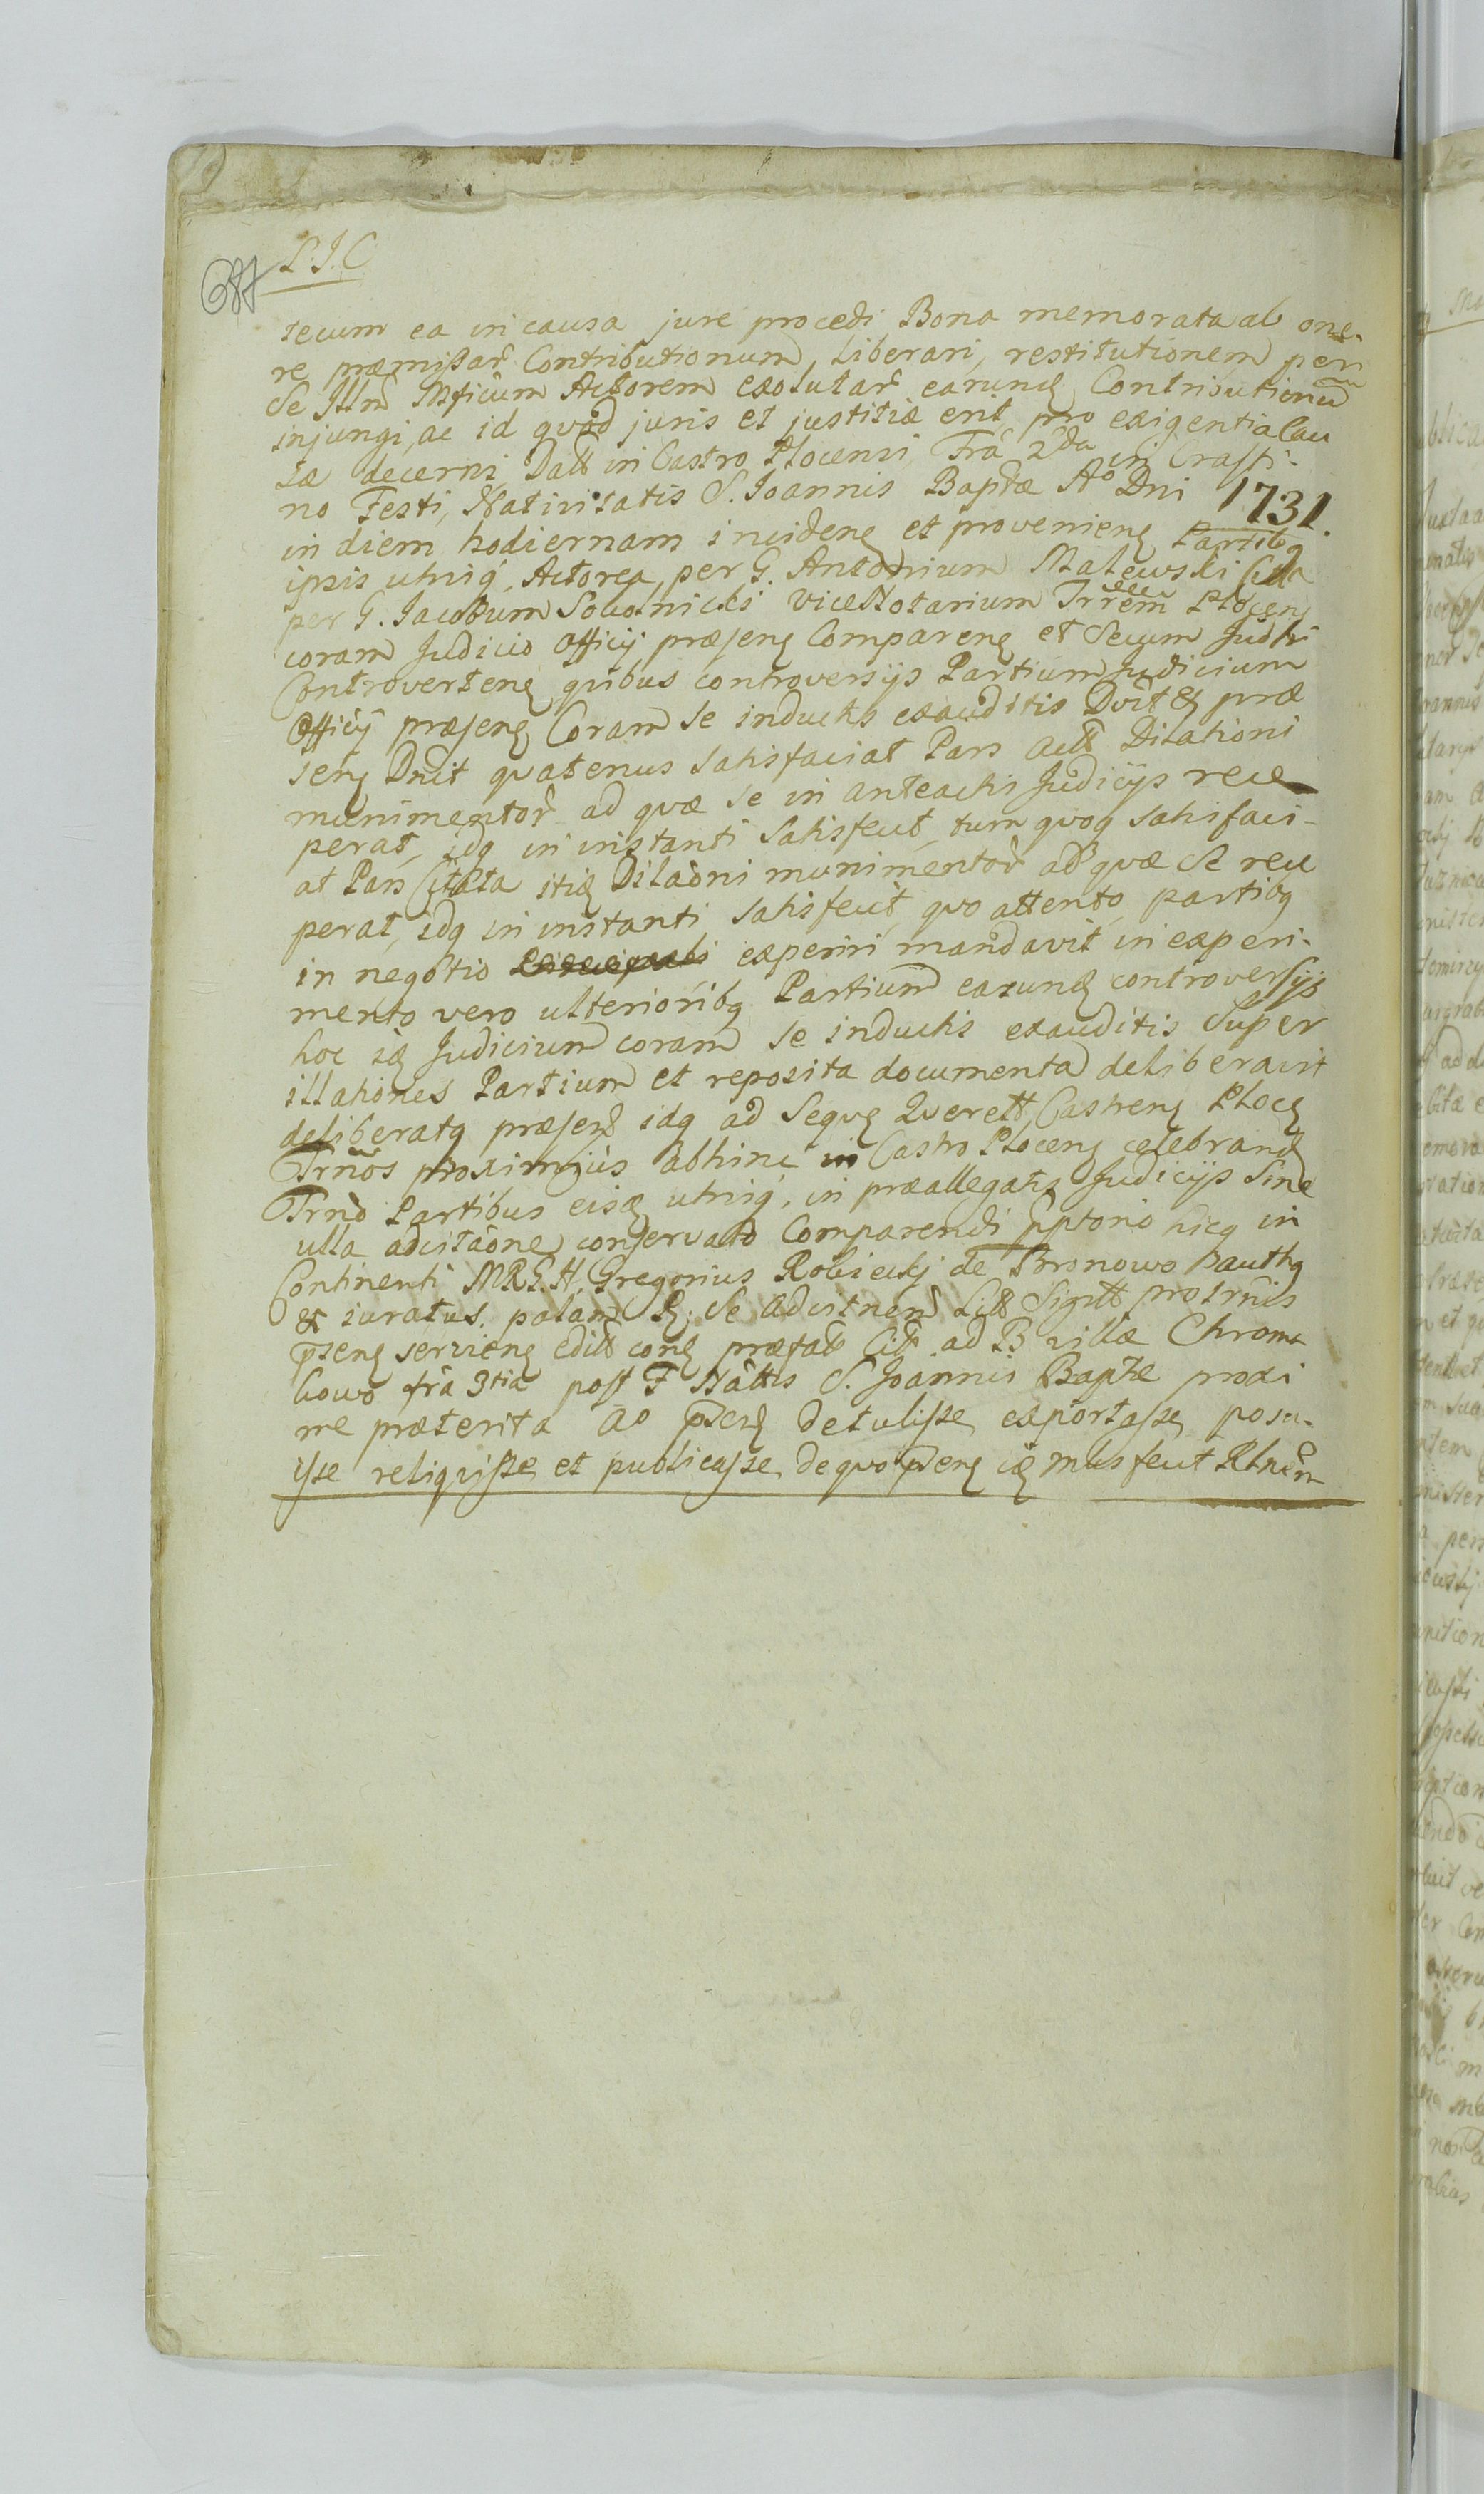 P. I. C.
secum ea in causa jure procedi Bona memorata ab one-
re præmissar Contributionum, Liberari, restitutionem per
Se Illm Mficum Actorem exolutar earund Contributionu
injungi, ac id qvod juris et justitiæ erit pro exigentia Cau
sæ decerni, Datt in Castro Plocensi Fra 2da in Crasti-
no Festi, Nativitatis S. Joannis Baptæ Ao Dni 1731.
in diem hodiernam inciden et provenien Partibq
ipsis utriq, Actorea per G. Antonium Malewski Citta
per G. Jacobum Sokolnicki ViceNotarium Trrem Plocen
coram Judicio Officij præsen Comparen et Secum Judtr
Controverten qvibus controversijs Partium Judicium
Officij præsen Coram se inductis exauditis Dvit & præ
sen Dnit qvatenus Satisfaciat Pars Act Dilationi
munimentor ad qvæ se in anteactis Judicijs rece
perat, idq in instanti Satisfecit, tum qvoq Satisfaci-
at Pars Citata itid Dilaoni munimentor ad qvæ Se rece
perat, idq in instanti Satisfecit, qvo attento partibq
in negotio experiri mandavit, in experi-
mento vero ulterioribq Partium earund controversijs
hoc id Judicium coram se inductis exauditis Super
illationes Partium et reposita documenta deliberavit
deliberatq præsen idq ad Seqve Qverett, Castren Ploce
Trnos proximius abhinc in Castro Plocen celebrand
Trno Partibus eisd utriq, in præallegatis Judicijs Sine
ulla adcitaone conservato Comparendi pptorio hicq in
Continenti MRGH Gregorius Robieckj de Bronowo pauthq
& iuratus. palam R. Se adcitnem Litt Sigitt pro trnis
psen servien editt con præfatt Citt ad B villæ Chrom
kowo fra 3tia post F Nattis S. Joannis Baptæ proxi
me præterita Ao psen detulisse exportasse posu-
isse reliqvisse et publicasse de qvo psen id mus fecit Rlnem